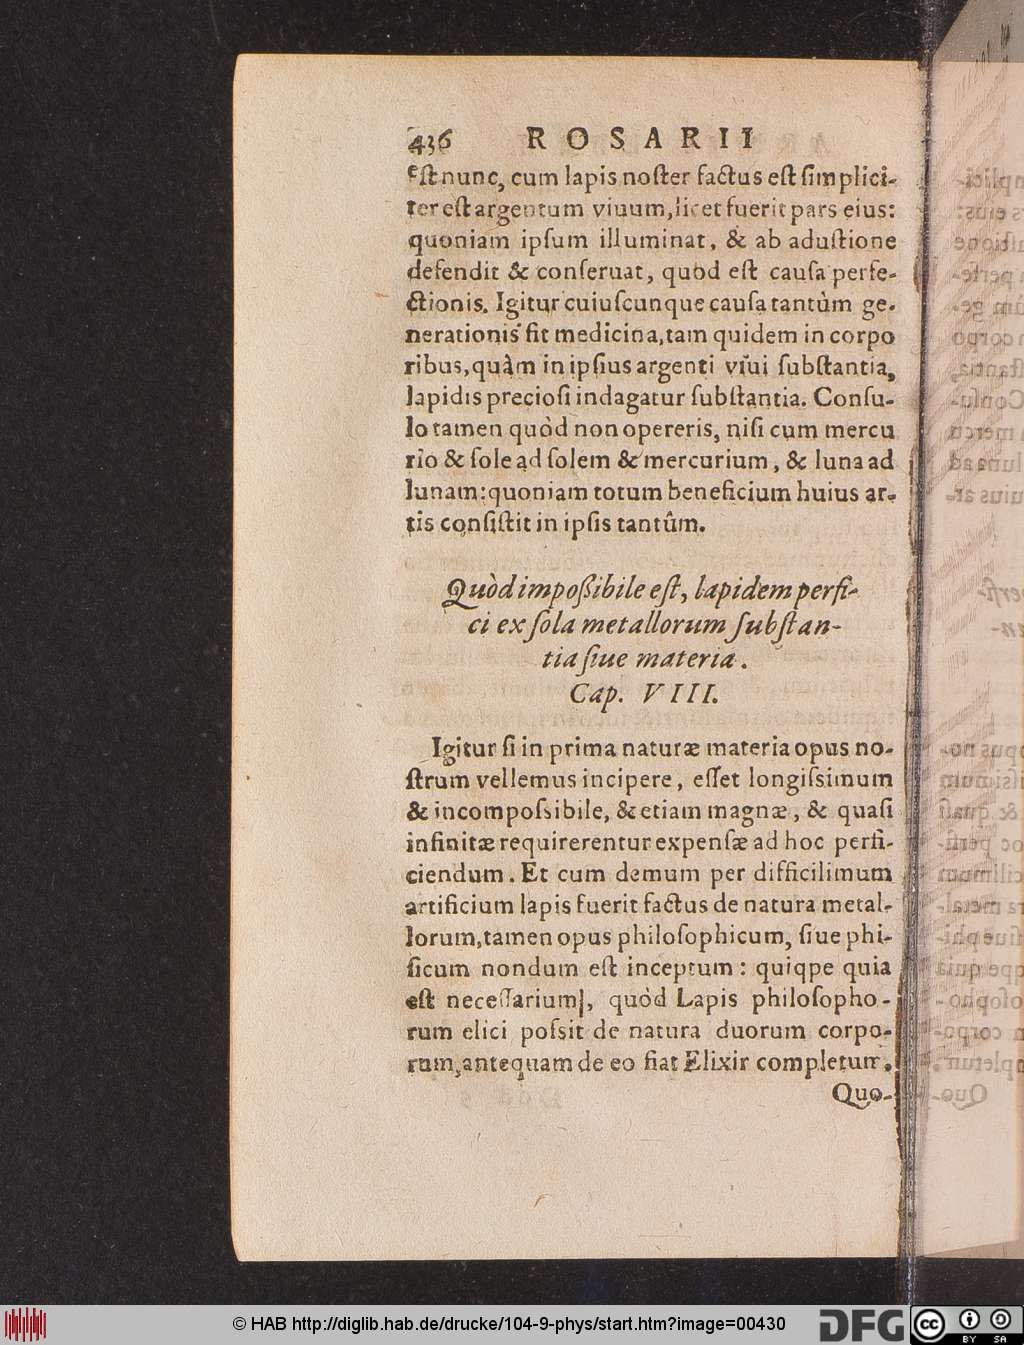 436 ROSARII
eſt nunc, cum lapis noſter factus eſt ſimplici-
ter eſt argentum viuum, licet fuerit pars eius:
quoniam ipſum illuminat, & ab aduſtione
defendit & conſeruat, quòd eſt cauſa perfe-
ctionis. Igitur cuiuſcunque cauſa tantùm ge-
nerationis fit medicina, tam quidem in corpo
ribus, quàm in ipſius argenti viui ſubſtantia,
lapidis precioſi indagatur ſubſtantia. Conſu-
lo tamen quòd non opereris, niſi cum mercu
rio & ſole ad ſolem & mercurium, & luna ad
lunam: quoniam totum beneficium huius ar-
tis conſiſtit in ipſis tantûm.
Quòd impoßibile eſt, lapidem perfi-
ci ex ſola metallorum ſubſtan-
tia ſiue materia.
Cap. VIII.
Igitur ſi in prima naturæ materia opus no-
ſtrum vellemus incipere, eſſet longiſsimum
& incompoſsibile, & etiam magnæ, & quaſi
infinitæ requirerentur expenſæ ad hoc perfi-
ciendum. Et cum demum per difficilimum
artificium lapis fuerit factus de natura metal-
lorum, tamen opus philoſophicum, ſiue phi-
ſicum nondum eſt inceptum: quiqpe quia
eſt neceſſarium, quòd Lapis philoſopho-
rum elici poſsit de natura duorum corpo-
rum, antequam de eo fiat Elixir completum.
Quo-
© HAB http://diglib.hab.de/drucke/104-9-phys/start.htm?image=00430
DFG
cc BY SA